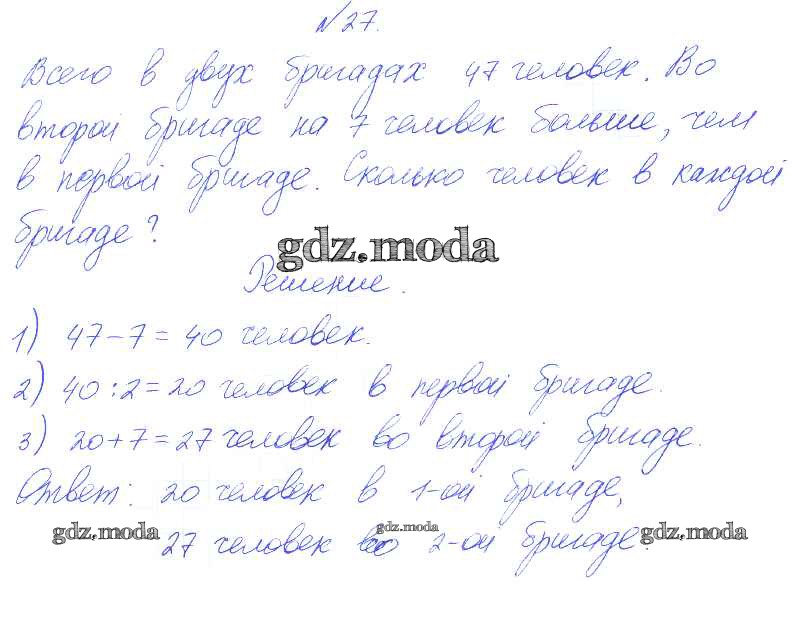 №27.
Всего в двух бригадах 47 человек. Во
второй бригаде на 7 человек больше, чем
в первой бригаде. Сколько человек в каждой
бригаде?
gdz.moda
Решение.
1) 47-7=40 человек.
2) 40:2=20 человек в первой бригаде.
3) 20+7=27 человек во второй бригаде.
Ответ: 20 человек в 1-ой бригаде,
gdz.moda gdz.moda gdz.moda
27 человек во 2-ой бригаде.